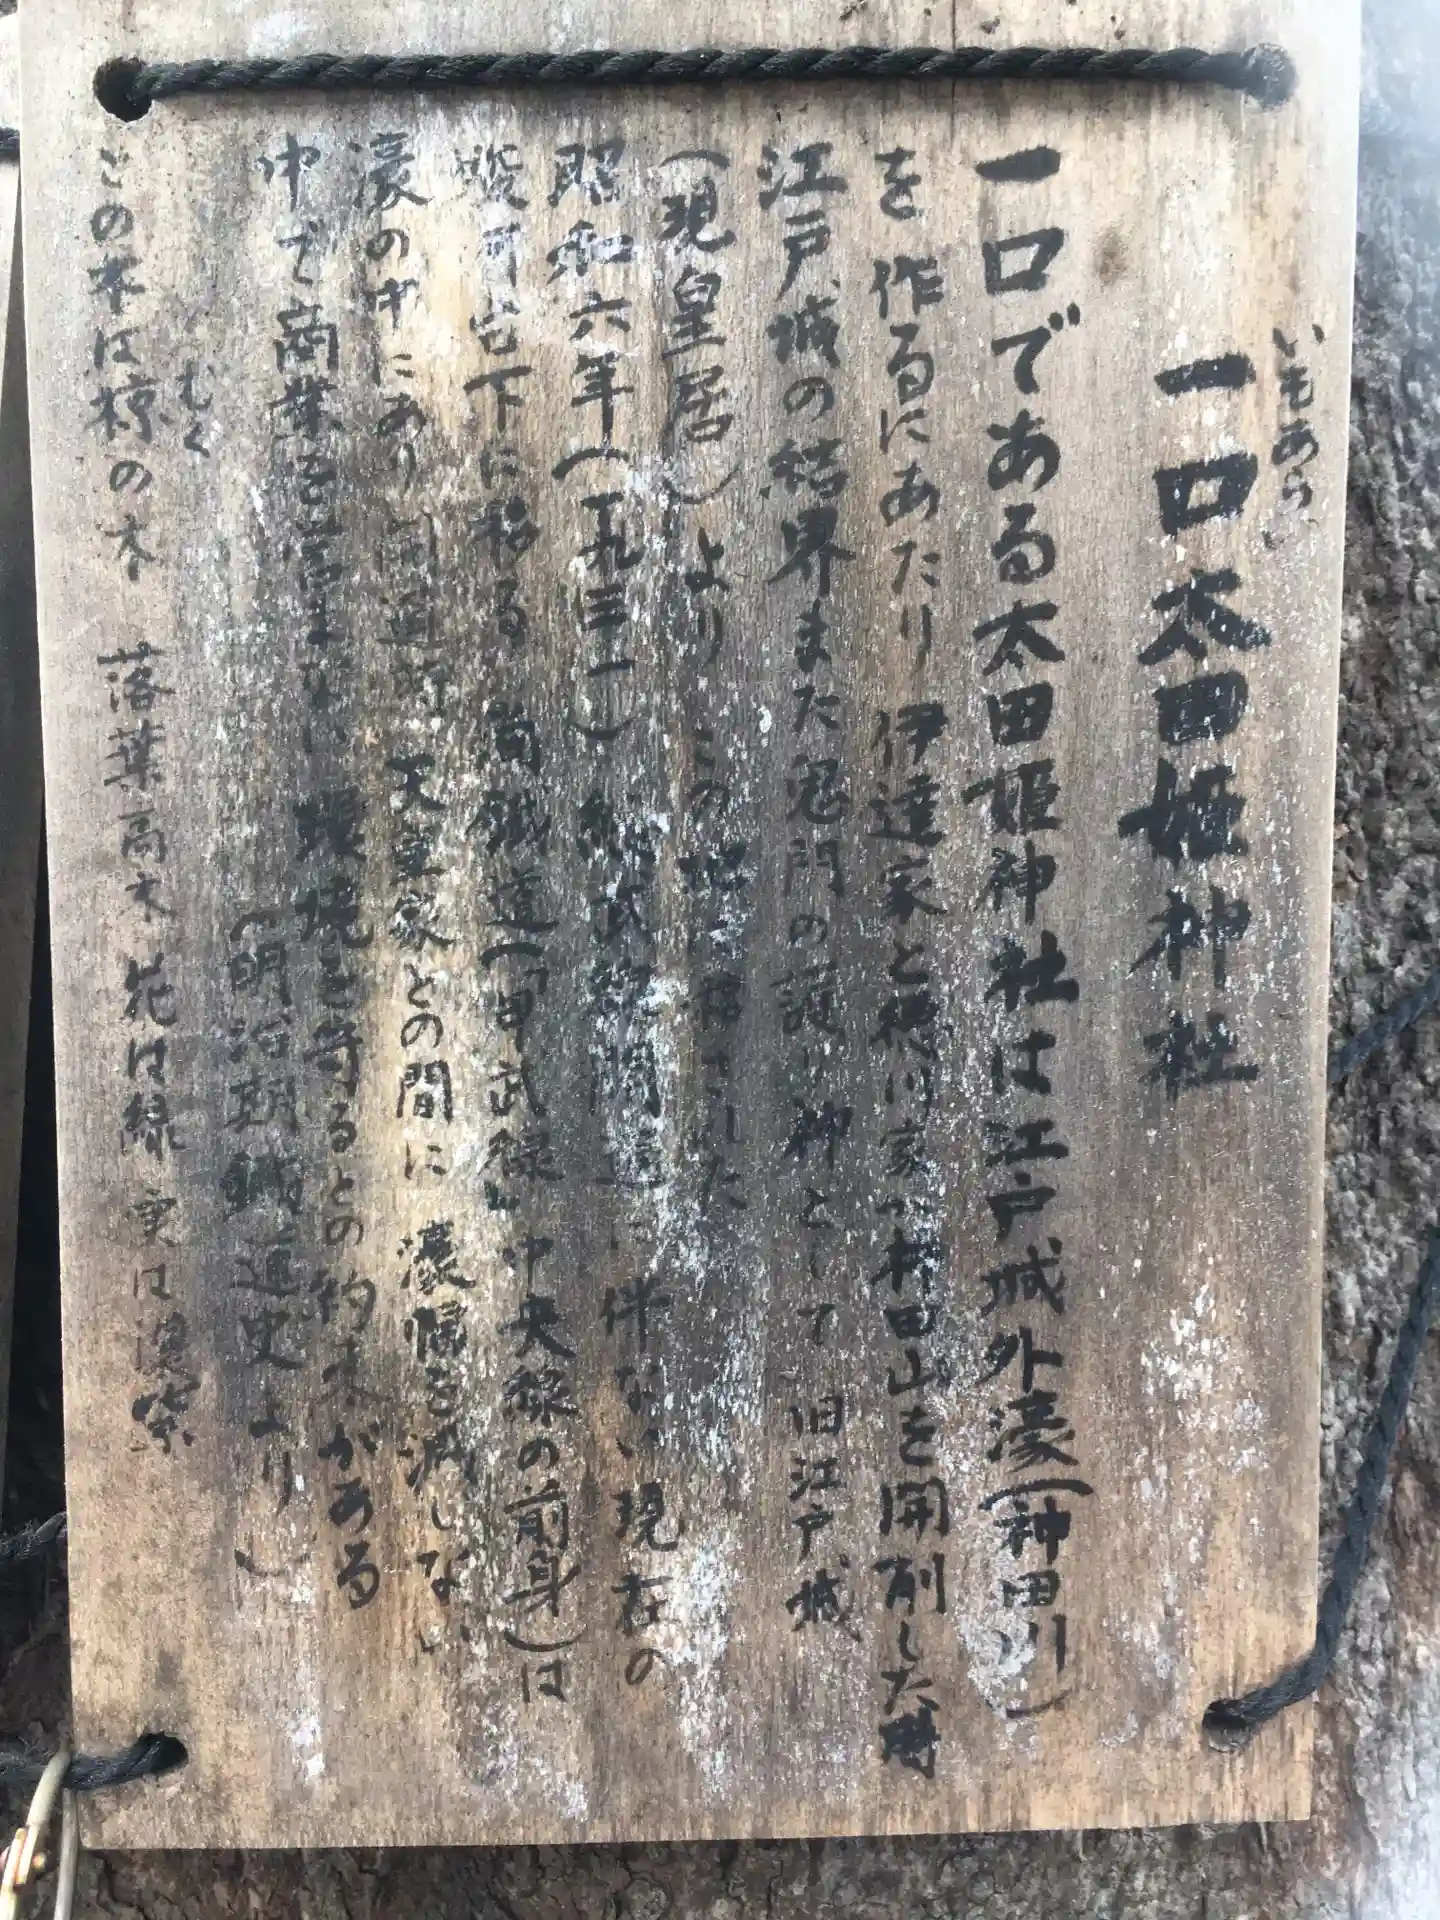 いもあらい
一口太田姫神社
一口である太田姫神社は江戸城外濠(神田川)
を作るにあたり 伊達家と徳川家が神田山を開削した時
江戸城の結界また鬼門の護り神として 旧江戸城
(現皇居)より この地に移された
昭和六年(一九三一)総武線開通に伴ない現在の
駿河台下に移る 両鉄道(「甲武線」中央線の前身)は
濠の中にあり 開通時 天皇家との間に 濠幅を減しない
中で商業を営まずに 環境を守るとの約束がある
(明治期鉄道史より)
むく
この木は椋の木 落葉高木 花は緑 実は濃紫